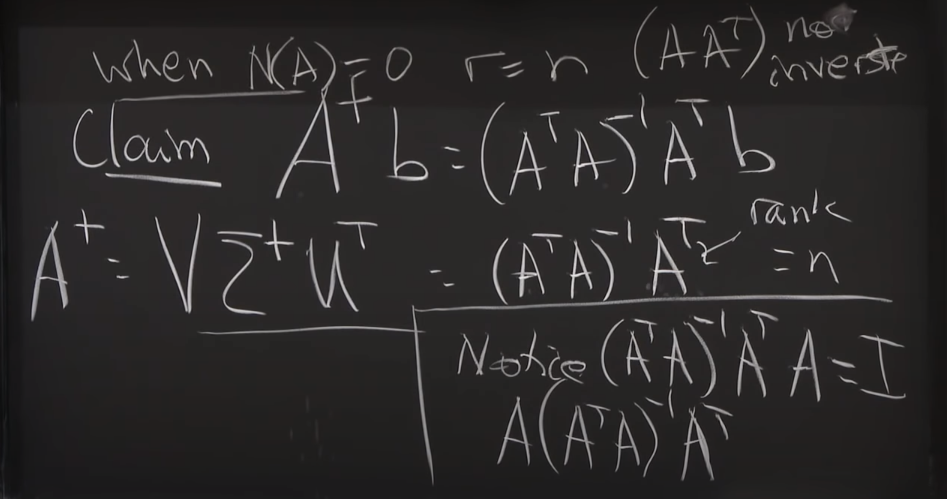 when N(A)=0 r=n (AAᵀ) no inverse
Claim A⁺b=(AᵀA)⁻¹Aᵀb
A⁺=VΣ⁺Uᵀ = (AᵀA)⁻¹Aᵀ rank =n
Notice (AᵀA)⁻¹AᵀA=I
A(AᵀA)⁻¹Aᵀ